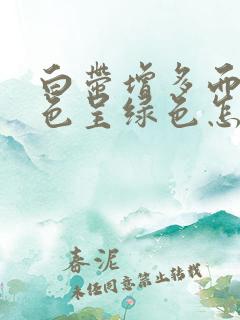 白带增多而
色呈绿色怎
春泥
未经同意禁止转载